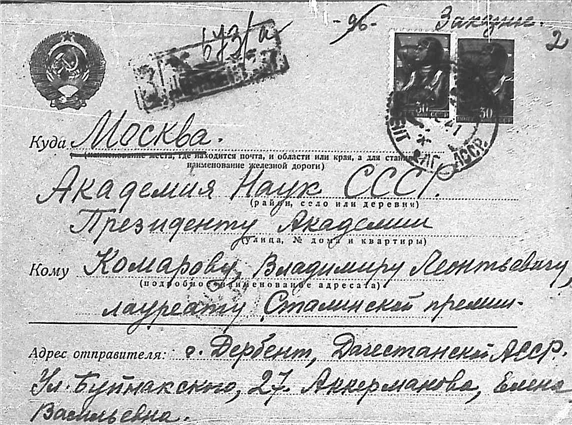 Заказное.
2
Куда Москва.
(наименование места, где находится почта, и области или края, а для станций
наименование железной дороги)
Академия Наук СССР
(район, село или деревня)
Президенту Академии
(улица, № дома и квартиры)
Кому Комарову, Владимиру Леонтьевичу,
(подробное наименование адресата)
лауреату Сталинской премии.
Адрес отправителя: г. Дербент, Дагестанской АССР.
Ул. Буйнакского, 27. Аккерманова, Елена
Васильевна.